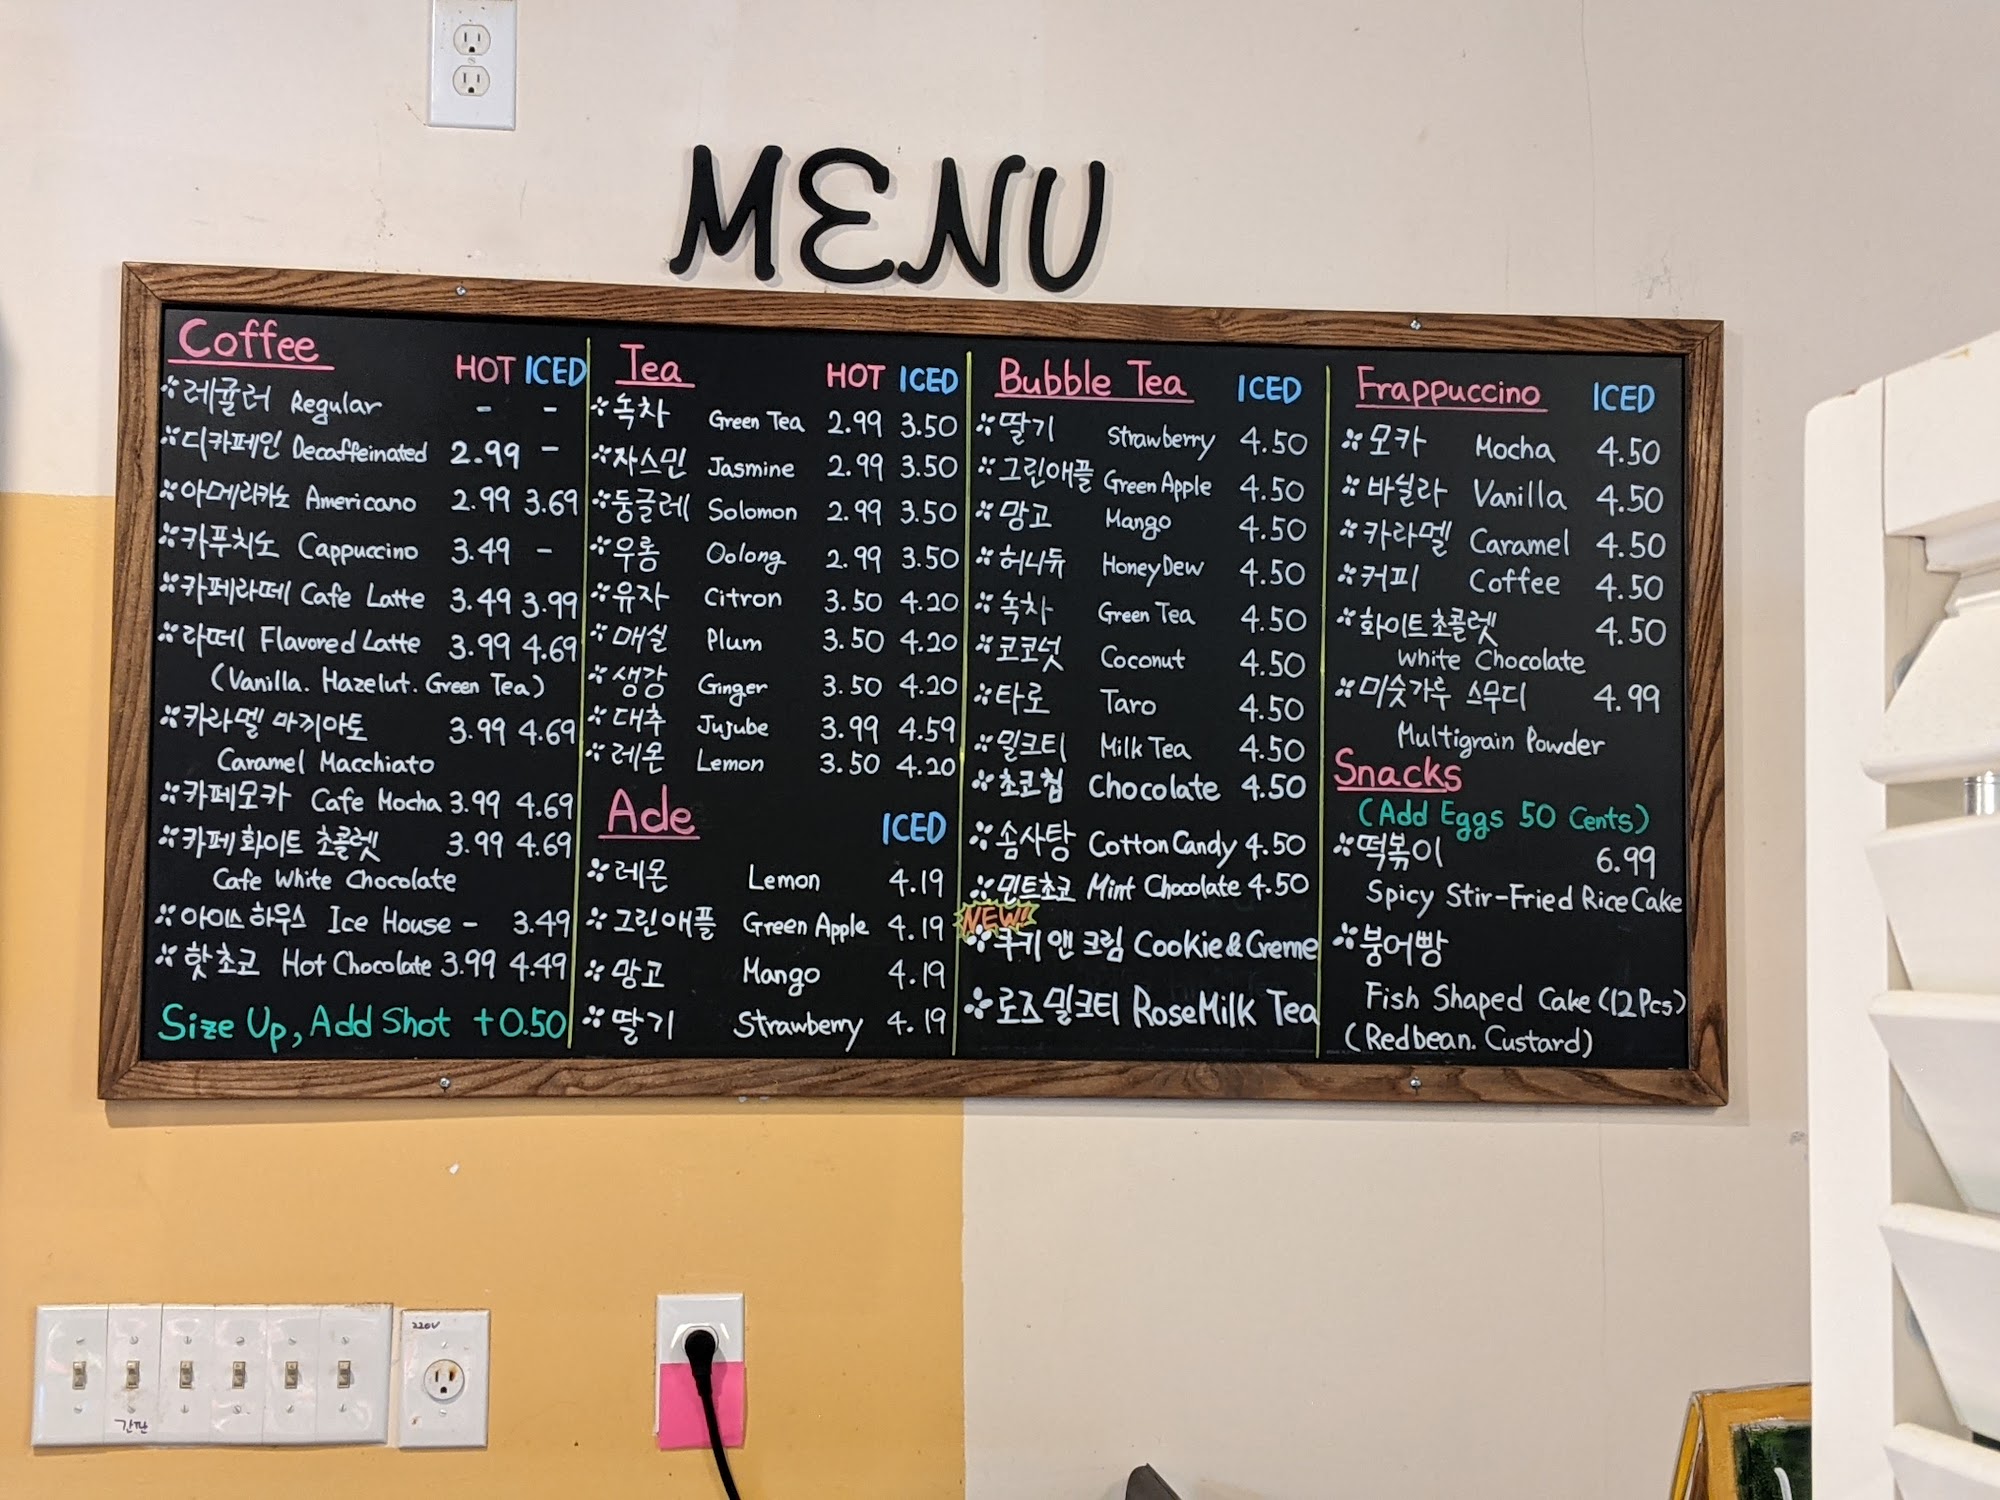 MENU
Coffee HOT ICED
레귤러 Regular - -
디카페인 Decaffeinated 2.99 -
아메리카노 Americano 2.99 3.69
카푸치노 Cappuccino 3.49 -
카페라떼 Cafe Latte 3.49 3.99
라떼 Flavored Latte 3.99 4.69
(Vanilla. Hazelut. Green Tea)
카라멜 마끼아토 3.99 4.69
Caramel Macchiato
카페모카 Cafe Mocha 3.99 4.69
카페 화이트 초콜렛 3.99 4.69
Cafe White Chocolate
아이스 하우스 Ice House - 3.49
핫초코 Hot Chocolate 3.99 4.49
Size Up, Add Shot +0.50
Tea HOT ICED
녹차 Green Tea 2.99 3.50
자스민 Jasmine 2.99 3.50
둥글레 Solomon 2.99 3.50
우롱 Oolong 2.99 3.50
유자 Citron 3.50 4.20
매실 Plum 3.50 4.20
생강 Ginger 3.50 4.20
대추 Jujube 3.99 4.59
레몬 Lemon 3.50 4.20
Ade ICED
레몬 Lemon 4.19
그린애플 Green Apple 4.19
망고 Mango 4.19
딸기 Strawberry 4.19
Bubble Tea ICED
딸기 Strawberry 4.50
그린애플 Green Apple 4.50
망고 Mango 4.50
허니듀 HoneyDew 4.50
녹차 Green Tea 4.50
코코넛 Coconut 4.50
타로 Taro 4.50
밀크티 Milk Tea 4.50
초코칩 Chocolate 4.50
솜사탕 Cotton Candy 4.50
민트초코 Mint Chocolate 4.50
NEW!
쿠키 앤 크림 Cookie & Creme
로즈밀크티 RoseMilk Tea
Frappuccino ICED
모카 Mocha 4.50
바닐라 Vanilla 4.50
카라멜 Caramel 4.50
커피 Coffee 4.50
화이트초콜렛 4.50
White Chocolate
미숫가루 스무디 4.99
Multigrain Powder
Snacks
(Add Eggs 50 Cents)
떡볶이 6.99
Spicy Stir-Fried Rice Cake
붕어빵
Fish Shaped Cake (12Pcs)
(Redbean. Custard)
간판
220V